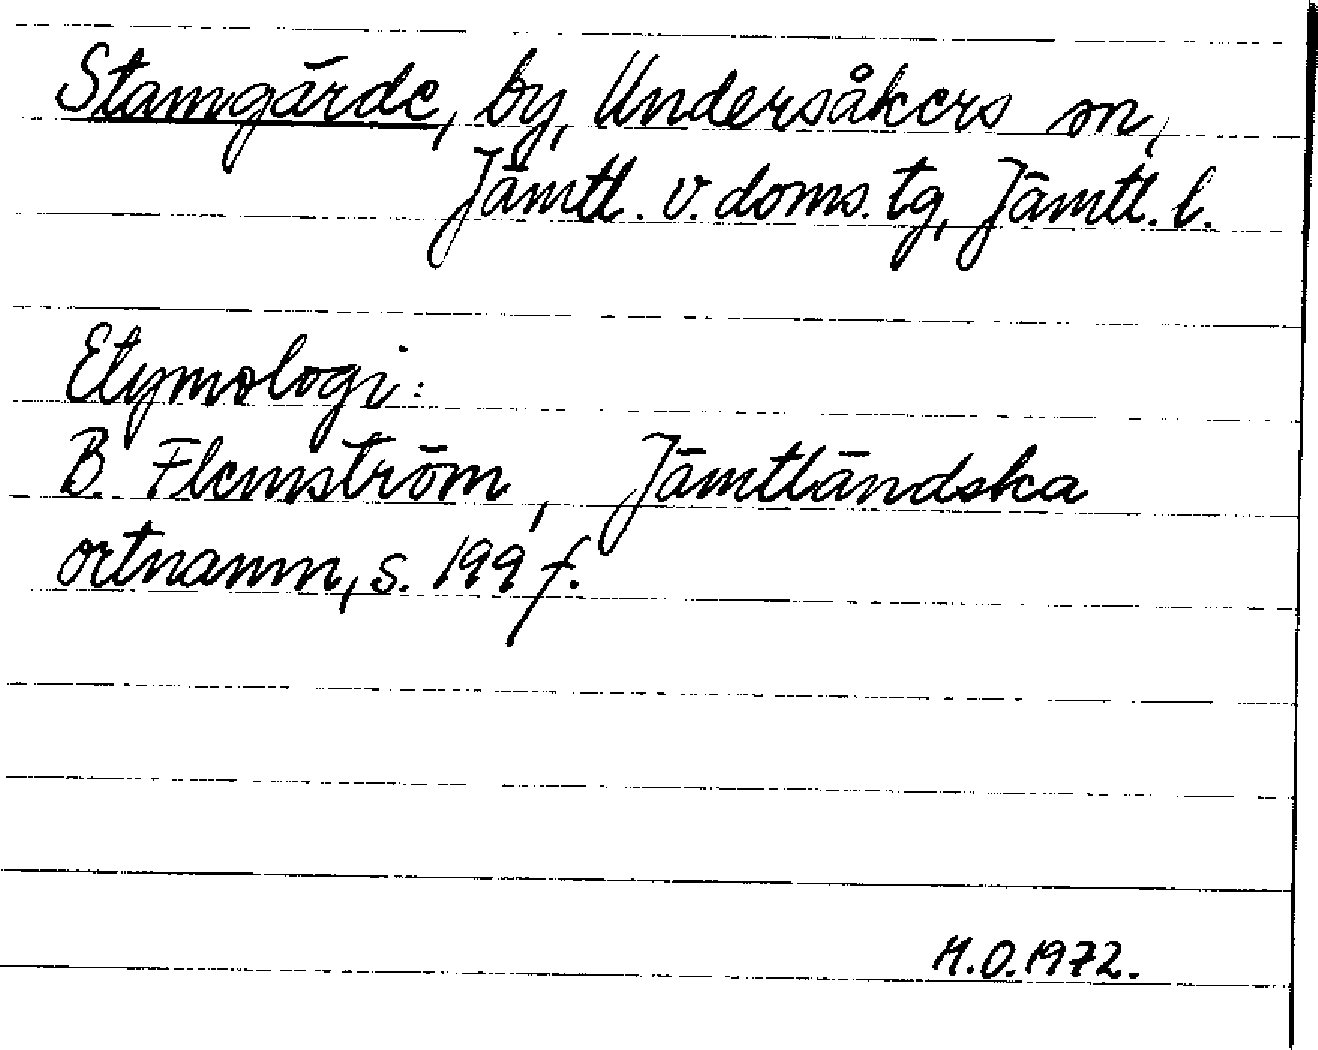 Stamgärde, by, Undersåkers sn,
Jämtl. v. doms. tg, Jämtl. l.
Etymologi:
B. Flemström, Jämtländska
ortnamn, s. 199 f.
M.O. 1972.